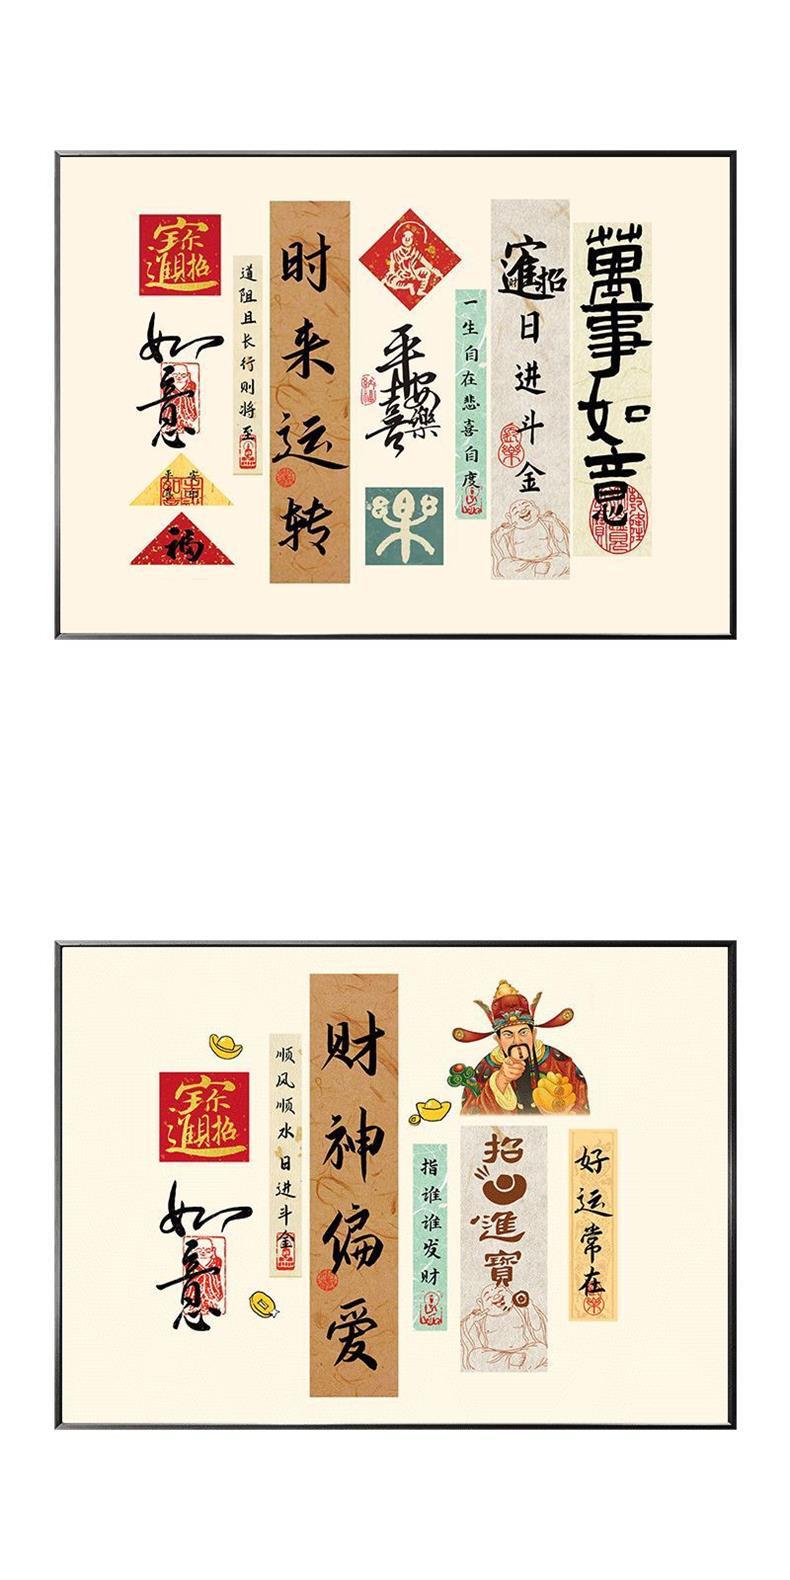 招财进宝
如意
平安
福
道阻且长行则将至
时来运转
平安喜樂
一生自在悲喜自度
樂
招财进宝
日进斗金
萬事如意
招财进宝
如意
顺风顺水日进斗金
财神偏爱
指谁谁发财
招財進寶
好运常在